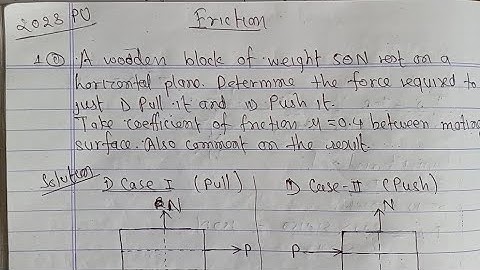 2023 PU
Friction
1 a A wooden block of weight 50N rest on a
horizontal plane. Determine the force required to
just i) Pull it and ii) Push it.
Take coefficient of friction μ=0.4 between moting
surface. Also comment on the result.
Solution
i) Case I (Pull)
ii) Case-II (Push)
N
N
P
P